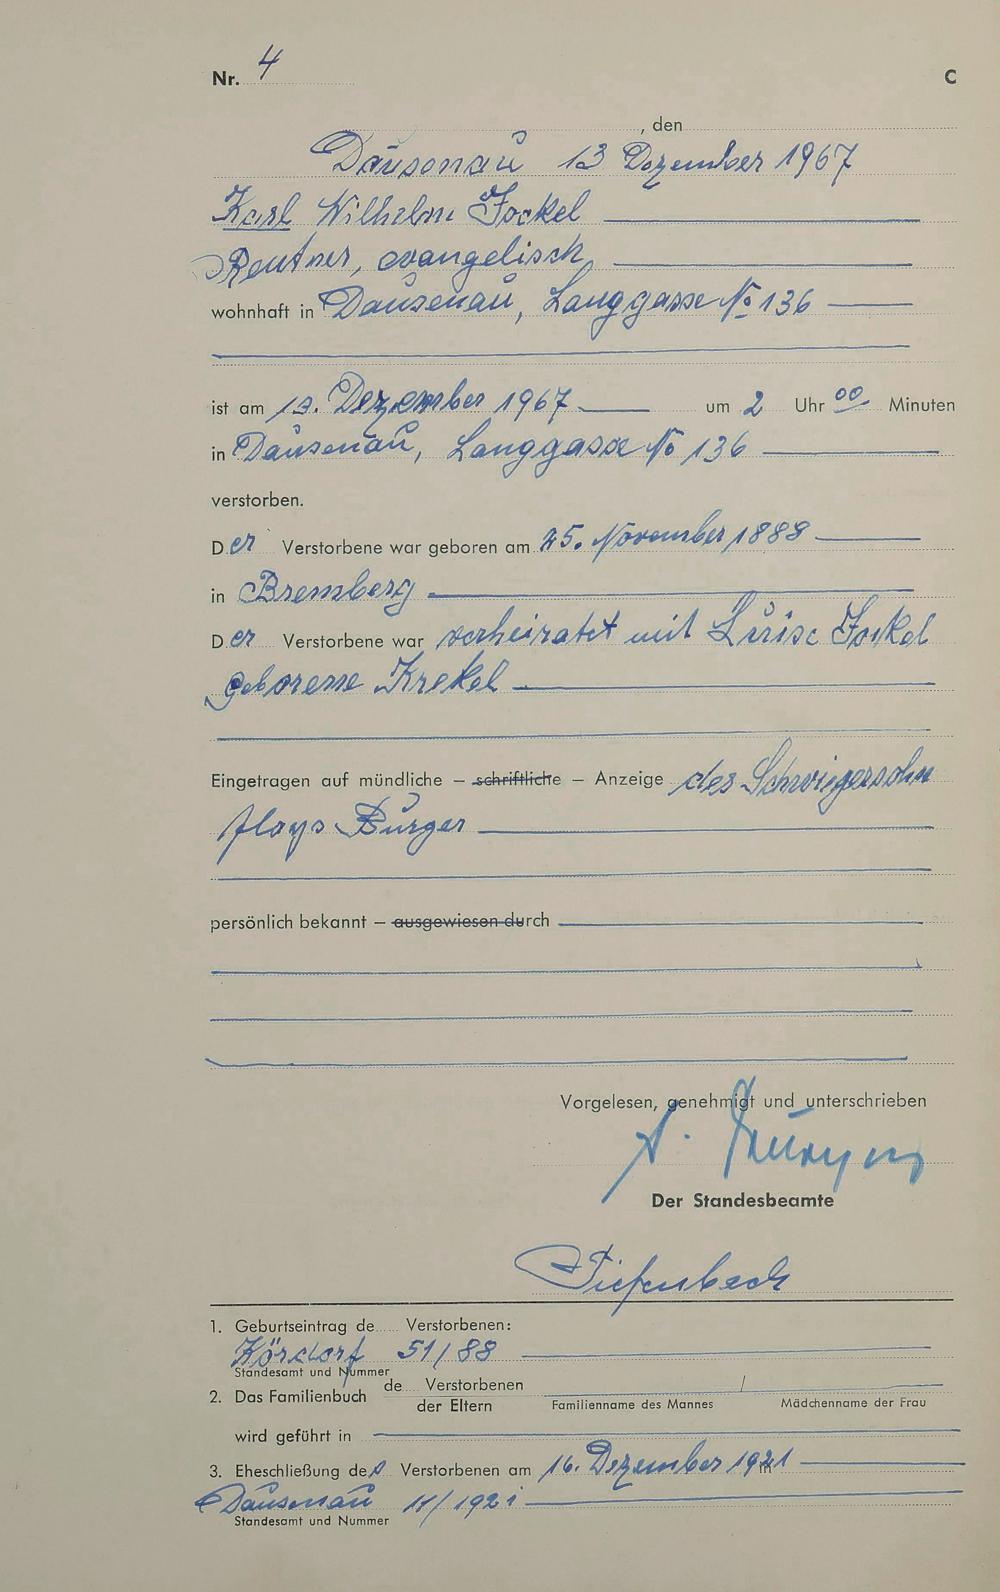 Nr. 4 C
, den
Dausenau 13 Dezember 1967
Karl Wilhelm Fockel
Rentner, evangelisch
wohnhaft in Dausenau, Langgasse No 136
ist am Dezember 1967 um 2 Uhr 00 Minuten
in Dausenau, Langgasse No 136
verstorben.
Der Verstorbene war geboren am 25. November 1888
in Bremberg
Der Verstorbene war verheiratet mit Luise Fockel
geborene Krekel
Eingetragen auf mündliche – schriftliche – Anzeige des Schwiegersohn
Aloys Bürger
persönlich bekannt – ausgewiesen durch
Vorgelesen, genehmigt und unterschrieben
A.
Der Standesbeamte
Tiefenbach
1. Geburtseintrag de Verstorbenen:
Kördorf 51/88
Standesamt und Nummer
2. Das Familienbuch de Verstorbenen
der Eltern Familienname des Mannes / Mädchenname der Frau
wird geführt in
3. Eheschließung des Verstorbenen am 16. Dezember 1921
Dausenau 11/1921
Standesamt und Nummer